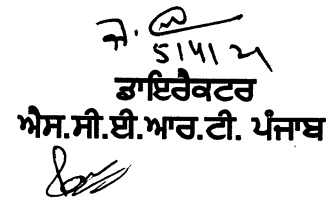 5/4/21
ਡਾਇਰੈਕਟਰ
ਐਸ.ਸੀ.ਈ.ਆਰ.ਟੀ. ਪੰਜਾਬ